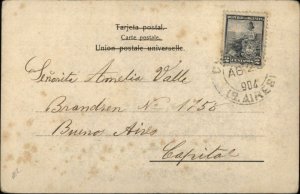 Tarjeta postal.
Carte postale.
Union postale universelle.
Señorita Amelia Valle
Brandzen No 1755
Buenos Aires
Capital
AG
904
(B. AIRES)